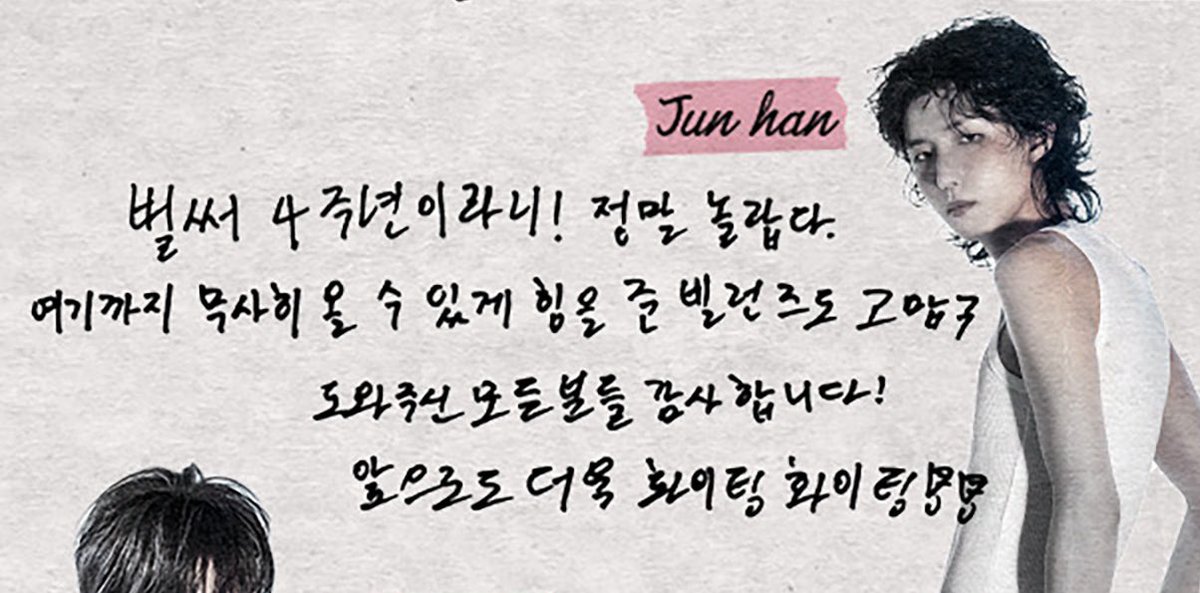 Jun han
벌써 4주년이라니! 정말 놀랍다.
여기까지 무사히 올 수 있게 힘을 준 빌런즈도 고맙구
도와주신 모든분들 감사합니다!
앞으로도 더욱 화이팅 화이팅